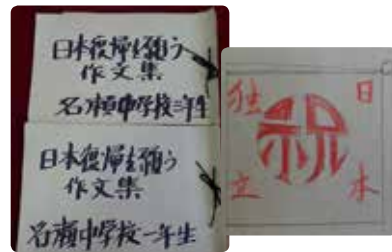 日本復帰を願う
作文集
名瀬中学校三年生
日本復帰を願う
作文集
名瀬中学校一年生
祝
日本
独立